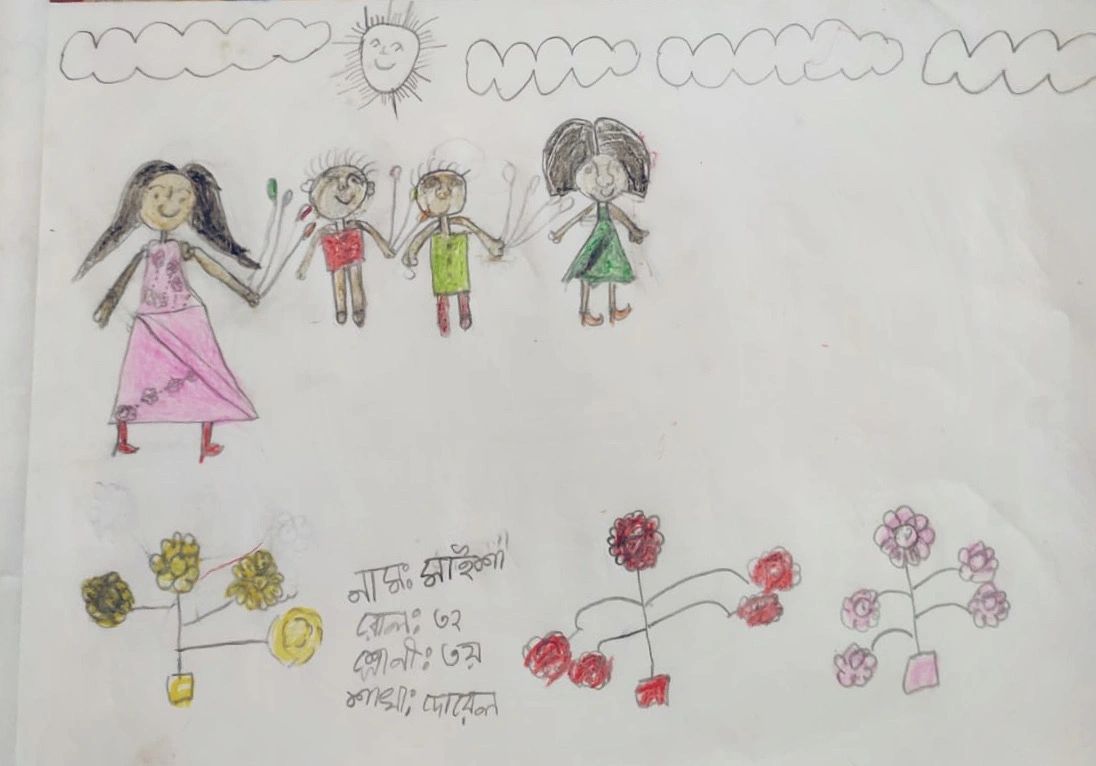 নামঃ মাইশা
রোলঃ ৩২
শ্রেনীঃ ৩য়
শাখাঃ দোয়েল